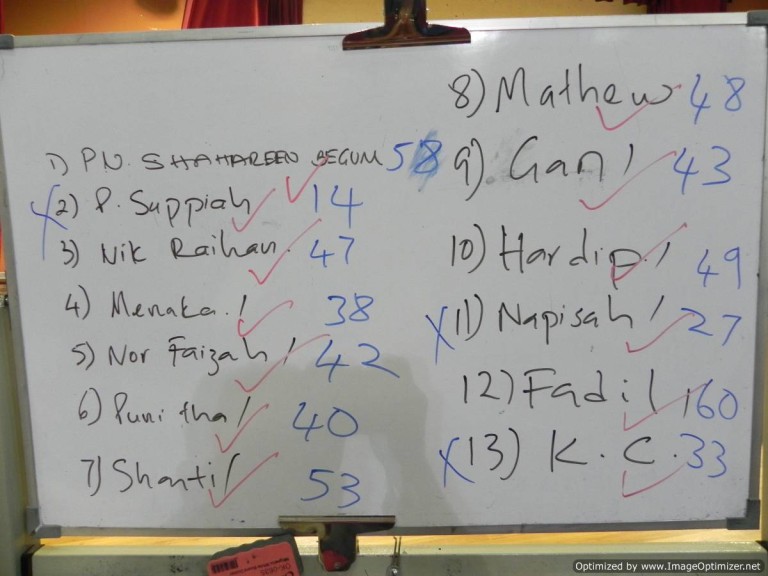 1) PN. SHAHAREEN BEGUM 58
X 2) P. Suppiah 14
3) Nik Raihan. 47
4) Menaka. / 38
5) Nor Faizah / 42
6) Punitha / 40
7) Shanti / 53
8) Mathew 48
9) Gan / 43
10) Hardip / 49
X 11) Napisah / 27
12) Fadil 60
X 13) K. C. 33
Optimized by www.ImageOptimizer.net